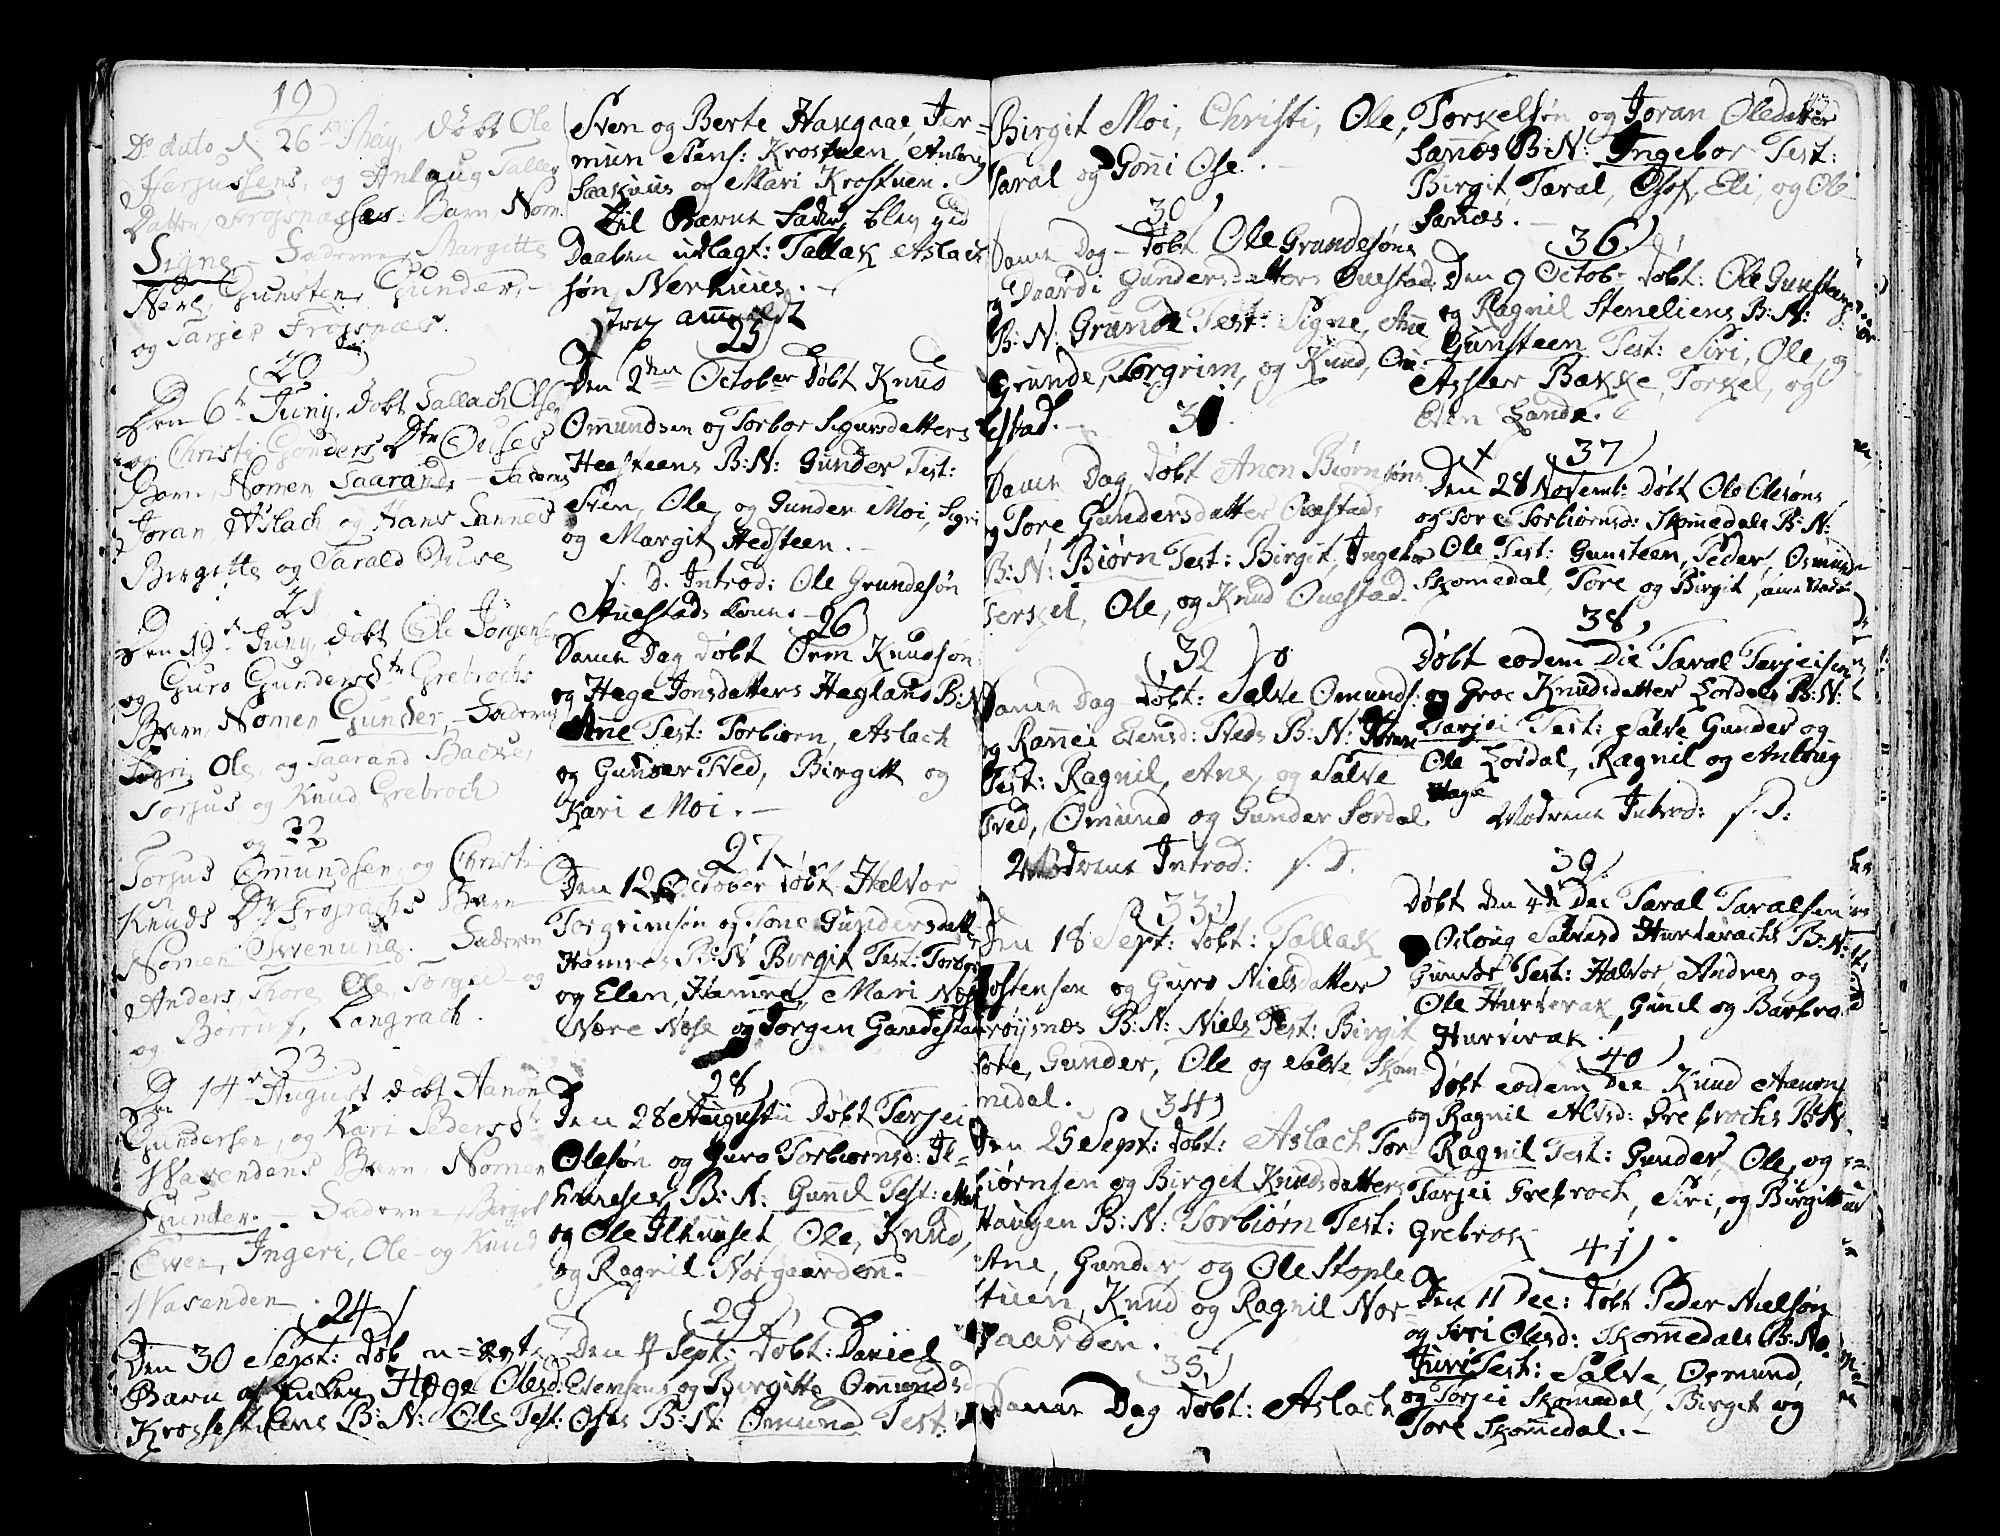 19
Do dato d. 26de May, døbt Ole
Herjussens, og Anlaug Tallev
Datter, Frøjsnæsses Barn Nom.
Signe, Faderne Margitte
Neri, Gunsten, Gunder,
og Tarjer Frøjsnæs.
20
Den 6t Junij, døbt Tallach Olsen
og Christi Gunders Dtr Ouses
Barn, Nomen Saarand, Faderne
Joran, Aslach og Hans Sannes
Birgitte og Tarald Ouse
21
Den 19de Juny, døbt Ole Jørgensen
og Guro Gunders Dtr Grebrochs
Barn, Nomen Gunder, Faderne
Sigri, Ole, og Saarand Backe,
Torjus og Knud Grebroch
22
og
Torjus Omundsen, og Christi
Knuds Dtr Frøjrachs Barn
Nomen Svenung. Faderne
Anders, Thore, Ole, Torgei og
og Langrach.
23
Den 14de August døbt Aanon
Gundersen, og Kari Peders Dtr
Wasendens Barn, Nomen
Gunder. Faderne, Berget
Even, Ingeri, Ole og Knud
Wasenden.
24
Den 30 Sept: døb
Barn af Hæge Olesd:
B:N: Ole Test:
Sven og Berte Haxgaae, Jer-
mun Stens: Krostuen, Anlaug
og Mari Krostuen.
Til Barnets Fader, blev ved
Daaben udlagt: Tallak Aslach
søn Nerhuus.
25
Den 2den October døbt Knud
Omundsen og Torbor Sigursdatters
Heesteens B:N: Gunder Test:
Sven, Ole, og Gunder Moi, Sigri
og Margit Hedsteen.
s. D. Introd: Ole Grundesøn
Auestads Kone.
26
Samme Dag døbt Orm Knudsøn
og Hæge Jonsdatters Hæglands B:N:
Anne Test: Torbiørn, Aslach
og Gunder Tved, Birgitt og
Kari Moi.
27
Den 12 October døbt Halvor
Torgrimsøn og Tone Gundersdatt.
Hamres B:N: Borgit Test: Torbor
og Elen, Hamre, Mari Næse
Nære Næse og Jørgen
28
Den 28 Augustii døbt Tarjei
Olesøn og Guro Torbiørnsd: Il-
B:N: Gunil Test:
og Ole Ole, Knud,
og Ragnil Norgaarden.
29
Den 4 Sept: døbt: Daniel
Evensens og Birgitte Omundsd
Oses B:N: Omund Test:
Birgit Moi, Christi, Ole,
Taral og Gonni Ose.
30
Samme Dag døbt Ole Grundesøns
og Gundersdatters Ouestad
B:N: Grunde Test: Signe, Ane
Grunde, Torgrim, og Knud, Oue
estad.
31
Samme Dag døbt Anon Biørnsøns
og Tore Gundersdatter Ouestads
B:N: Biørn Test: Birgit, Ingebor
Terkel, Ole, og Knud Ouestad.
32
Samme Dag døbt: Salve Omunds:
og Rannei Evensd: Steds B:N:
Test: Ragnil, Ane, og Salve
Tved, Omund og Gunder Lordal
Moderens Introd: s. D.
33
Den 18 Sept: døbt: Tallak
Jostensen og Guro Nielsdatter
Frøysnæs B:N: Niels Test: Birgit
Gunder, Ole og Salve Skom-
midal.
34
Den 25 Sept: døbt: Aslach Tor-
biørnsen og Birget Knudsdatters
Haugen B:N: Torbiørn Test:
Ane, Gunder og Ole Stople
stuen, Knud og Ragnil Nor-
gaarden.
35
Samme Dag døbt: Aslach
Torkelsøn og Joran Oledatter
Sannes B:N: Ingebor Test:
Birgit, Taral, Olof, Eli, og Ole
Sannes.
36
Den 9 Octobr døbt: Ole Gunsteens
og Ragnil Steneliens B:N:
Gunsteen Test: Siri, Ole, og
Asslev Bakke, Torkel, og
Even Lande.
37
Den 28 Novemb: døbt Ole Olesøns
og Tore Torbiørnsd: Skomedals B:N:
Ole Test: Gunsteen, Peder, Osmund
Skomedal, Tore og Birgit
38
Døbt eodem Die Taral Tarjeisen
og Groe Knudsdatter Lordals B:N:
Tarjei Test: Salve Gunder og
Ole Lordal, Ragnil og Anlaug
Hage
Moderens Introd: s. D:
39
Døbt den 4de Dec Taral Taralsen
og Oiloug Salvesd Hurverachs B:N:
Gunder Test: Halvor, Andres og
Ole Hurverak, Gunil og Barbra
Hurverak.
40
Døbt eodem Die Knud Aanons
og Ragnil Alvsd: Grebrochs B:N:
Ragnil Test: Gunder, Ole, og
Tarjei Grebrock, Siri, og Birgitt
Grebrok
41
Den 11 Dec: døbt Peder Nielsøn
og Siri Olesd: Skomedals B:N:
Juri Test: Salve, Osmund,
og Torjei Skomedal, Birget og
Tore Skomedal.